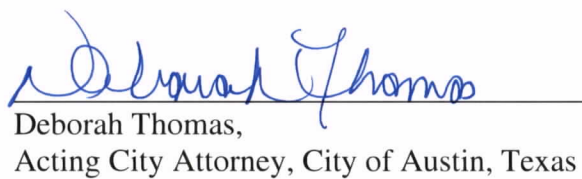 Deborah Thomas
Deborah Thomas,
Acting City Attorney, City of Austin, Texas